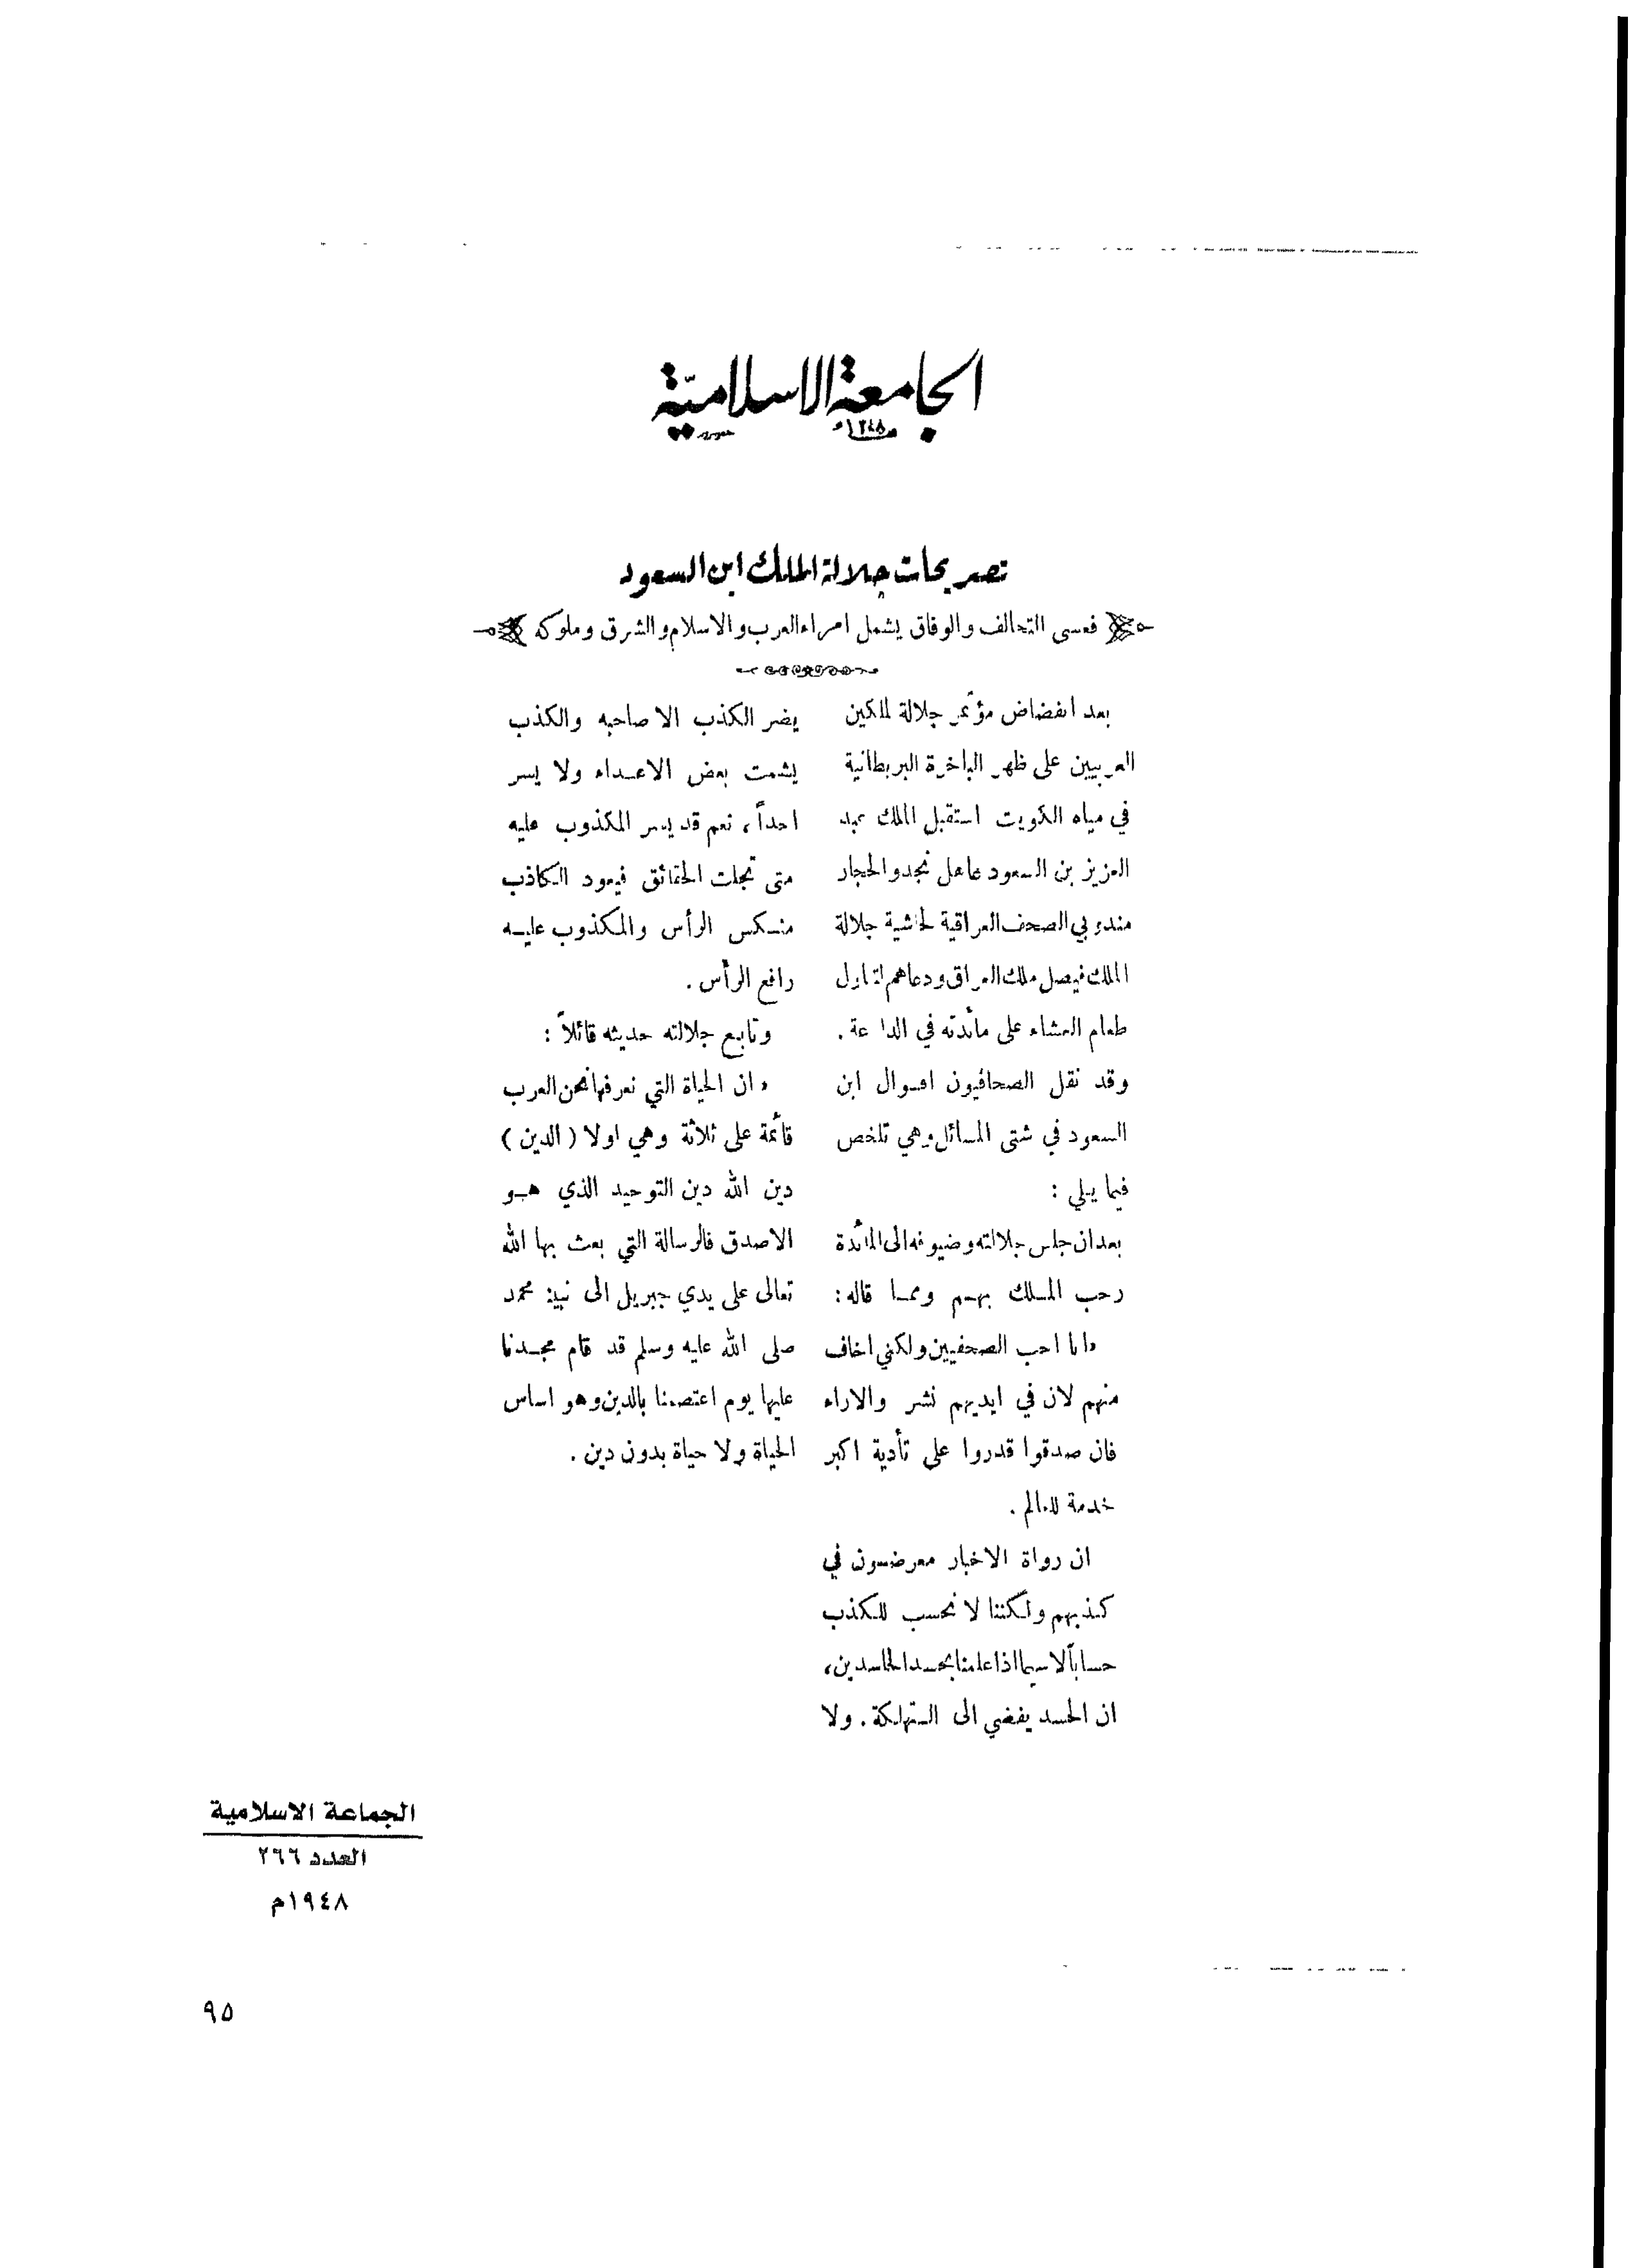 الجامعة الاسلامية
١٣٤٨
تصريحات جلالة الملك ابن السعود
فعسى التحالف والوفاق يشمل امراء العرب والاسلام والشرق وملوكه
بعد انفضاض مؤتمر جلالة الملكين
العربيين على ظهر الباخرة البريطانية
في مياه الكويت استقبل الملك عبد
العزيز بن السعود عاهل نجد والحجاز
مندوبي الصحف العراقية لحاشية جلالة
الملك فيصل ملك العراق ودعاهم لتناول
طعام العشاء على مائدته في الداعة .
وقد نقل الصحافيون اقوال ابن
السعود في شتى المسائل وهي تلخص
فيما يلي :
بعد ان جلس جلالته وضيوفه الى المائدة
رحب الملك بهم ومما قاله :
«انا احب الصحفيين ولكني اخاف
منهم لان في ايديهم نشر والاراء
فان صدقوا قدروا على تأدية اكبر
خدمة للعالم .
ان رواة الاخبار معرضون في
كذبهم ولكننا لا نحسب للكذب
حساباً لا سيما اذا علمنا بحسد الحاسدين،
ان الحسد يفضي الى التهلكة . ولا
يضر الكذب الا صاحبه والكذب
يشمت بعض الاعداء ولا يسر
احداً، نعم قد يسر المكذوب عليه
متى تجلت الحقائق فيعود الكاذب
منكس الرأس والمكذوب عليه
رافع الرأس .
وتابع جلالته حديثه قائلاً :
«ان الحياة التي نعرفها نحن العرب
قائمة على ثلاثة وهي اولا ( الدين )
دين الله دين التوحيد الذي هو
الاصدق فالرسالة التي بعث بها الله
تعالى على يدي جبريل الى نبيه محمد
صلى الله عليه وسلم قد قام مجدنا
عليها يوم اعتصمنا بالدين وهو اساس
الحياة ولا حياة بدون دين .
الجماعة الاسلامية
العدد ٢٦٦
١٩٤٨م
٩٥